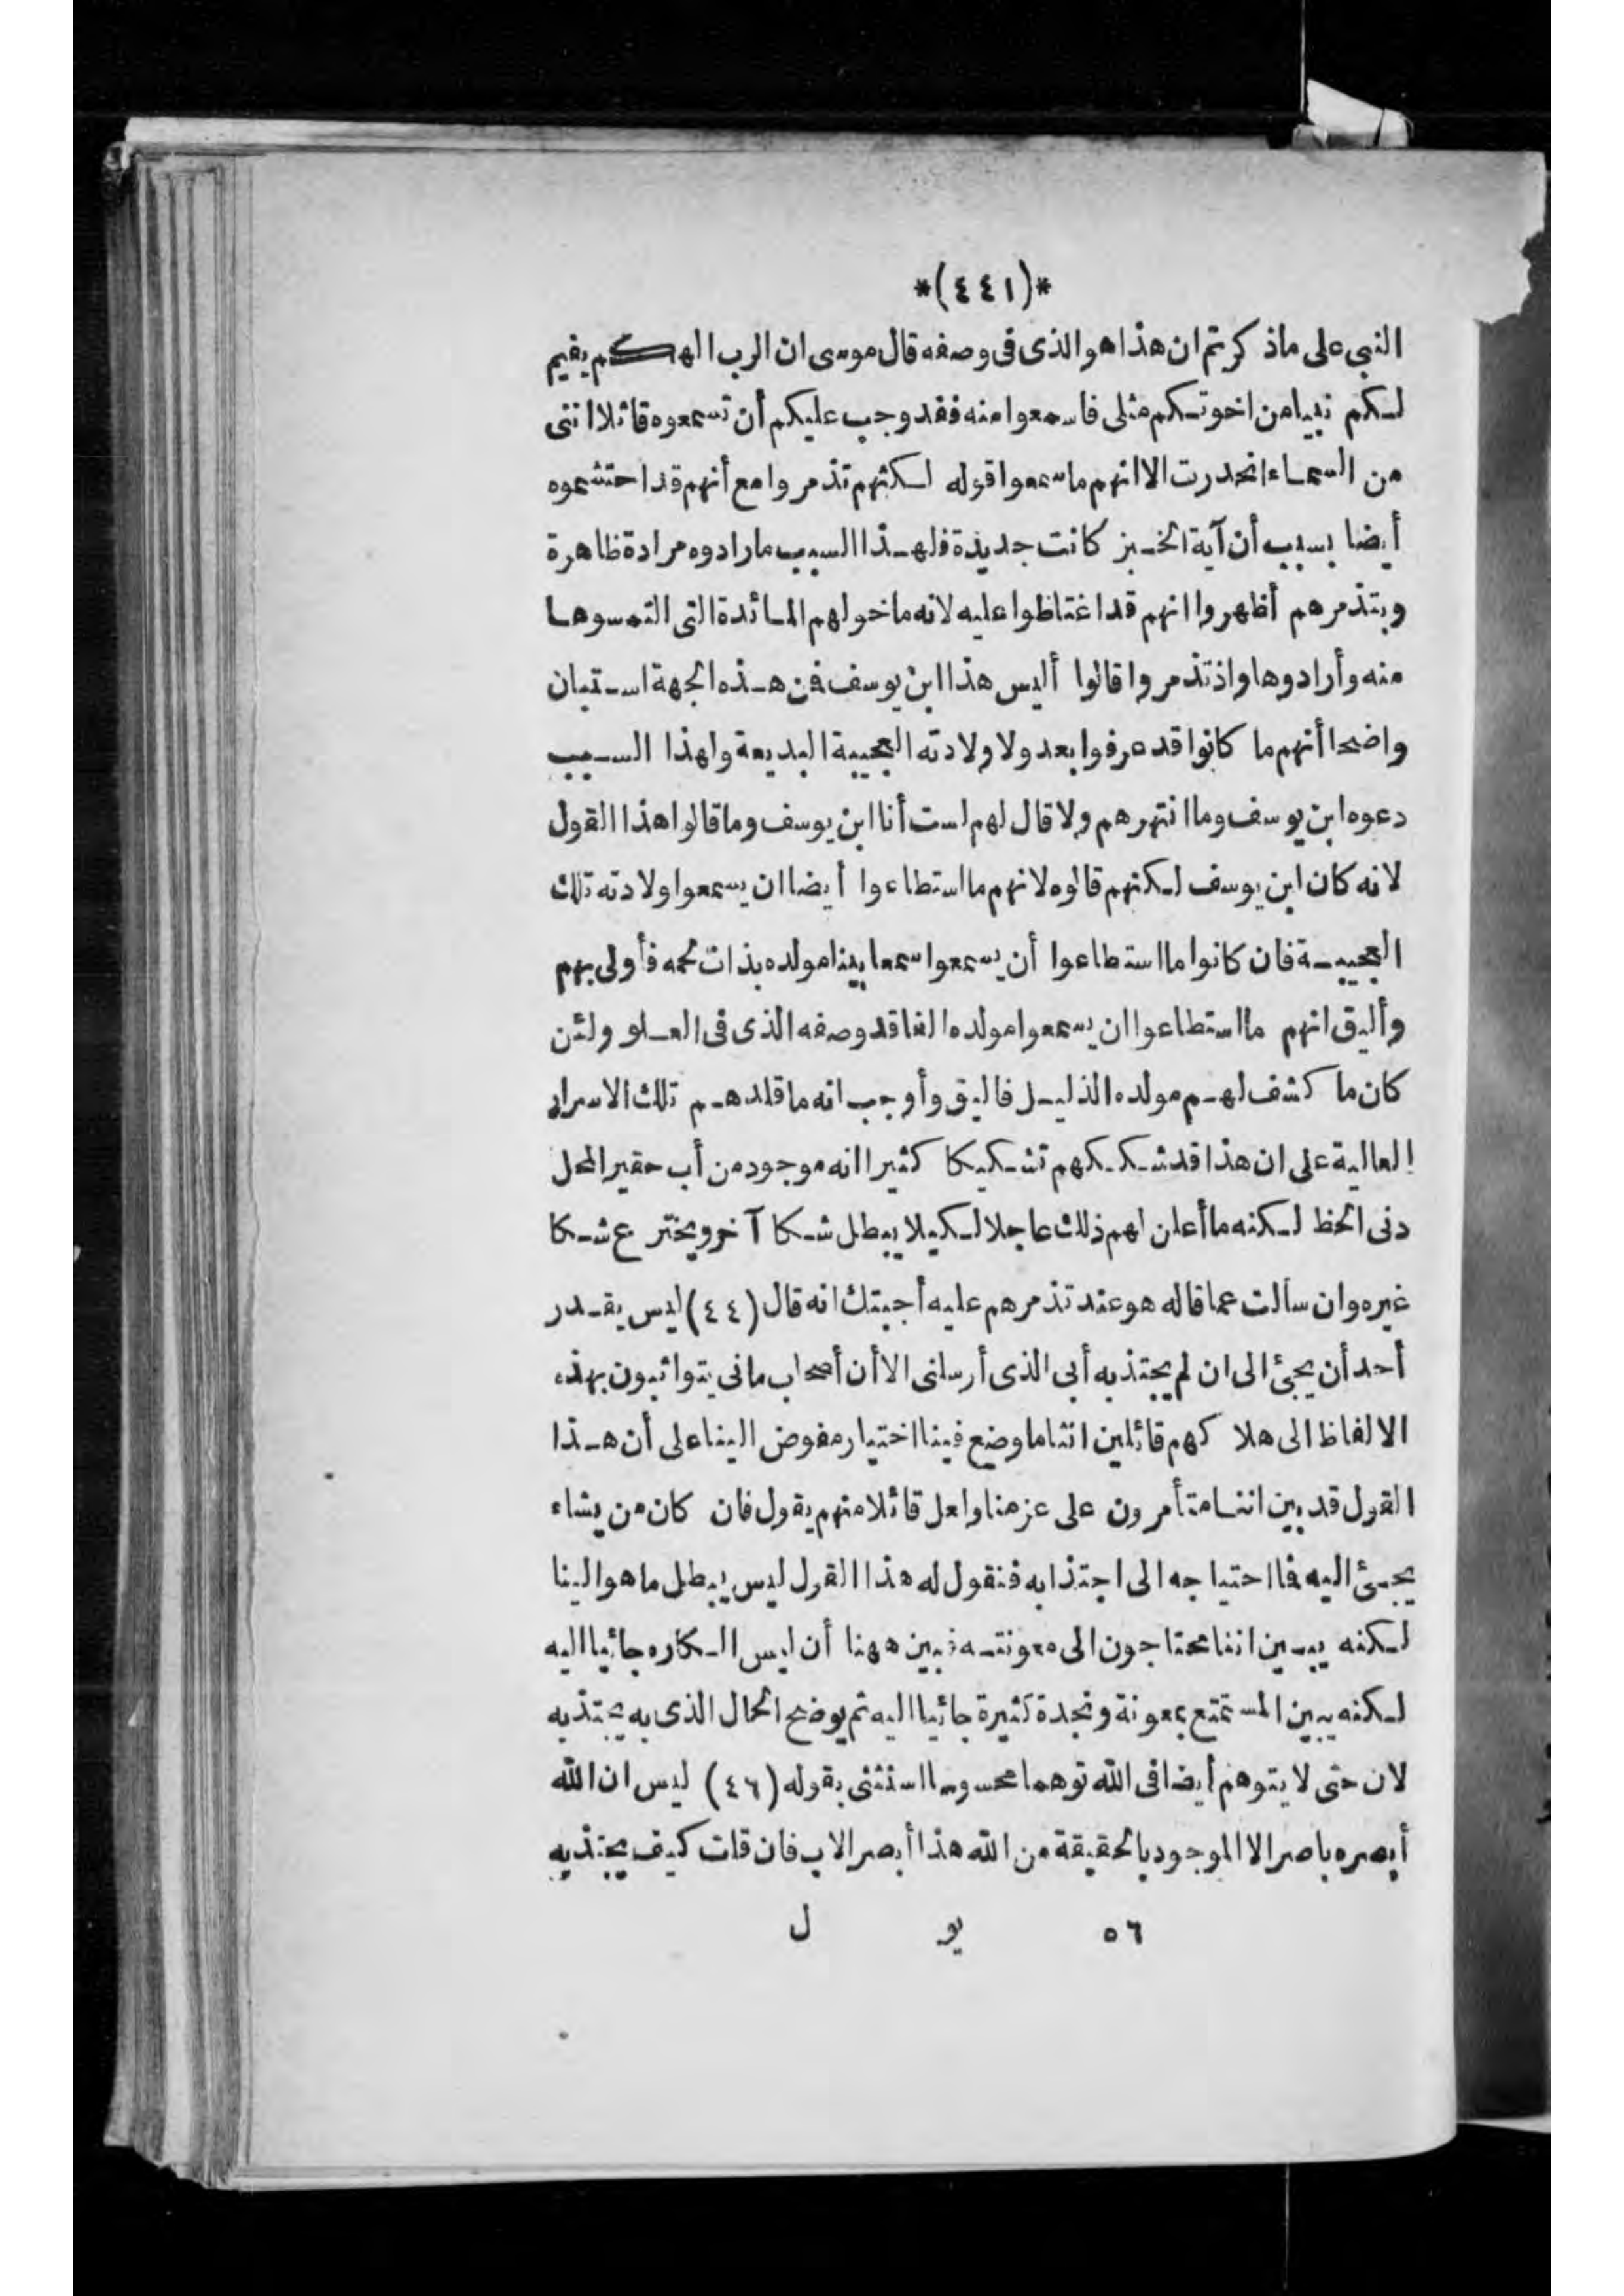 *(٤٤١)*
النبي على ماذكرتم ان هذا هو الذى فى وصفه قال موسى ان الرب الهكم يقيم
لكم نبيا من اخوتكم مثلى فاسمعوا منه فقد وجب عليكم أن تسمعوه قائلا اننى
من السماء انحدرت الا انهم ما سمعوا قوله لكنهم تذمروا مع أنهم قد احتشموه
أيضا بسبب أن آية الخبز كانت جديدة فلهذا السبب ما رادوه مرادة ظاهرة
وبتذمرهم أظهروا انهم قد اغتاظوا عليه لانه ما خولهم المائدة التى التمسوها
منه وأرادوها واذ تذمروا قالوا أليس هذا ابن يوسف فمن هذه الجهة استبان
واضحا أنهم ما كانوا قد عرفوا بعد ولا ولادته العجيبة البديعة ولهذا السبب
دعوه ابن يوسف وما انتهرهم ولا قال لهم لست أنا ابن يوسف وما قالوا هذا القول
لانه كان ابن يوسف لكنهم قالوه لانهم ما استطاعوا أيضا ان يسمعوا ولادته تلك
العجيبة فان كانوا ما استطاعوا أن يسمعوا سمعا بينا مولده بذات لحمه فأولى بهم
وأليق انهم ما استطاعوا ان يسمعوا مولده الفاقد وصفه الذى فى العلو ولئن
كان ما كشف لهم مولده الذليل فاليق وأوجب انه ما قلدهم تلك الاسرار
العالية على ان هذا قد شككهم تشكيكا كثيرا انه موجود من أب حقير المحل
دنى الحظ لكنه ما أعلن لهم ذلك عاجلا لكيلا يبطل شكا آخر ويخترع شكا
غيره وان سألت عما قاله هو عند تذمرهم عليه أجبتك انه قال (٤٤) ليس يقدر
أحد أن يجئ الى ان لم يجتذبه أبى الذى أرسلنى الا أن أصحاب مانى يتواثبون بهذه
الالفاظ الى هلاكهم قائلين اننا ما وضع فينا اختيار مفوض الينا على أن هذا
القول قد بين اننا متأمرون على عزمنا ولعل قائلا منهم يقول فان كان من يشاء
يجئ اليه فما احتياجه الى اجتذابه فنقول له هذا القول ليس يبطل ما هو الينا
لكنه يبين اننا محتاجون الى معونته فبين ههنا أن ليس الكاره جائيا اليه
لكنه يبين المستمتع بمعونة ونجدة كثيرة جائيا اليه ثم يوضح الحال الذى به يجتذبه
لان حتى لا يتوهم أيضا فى الله توهما محسوسا استثنى بقوله (٤٦) ليس ان الله
أبصره باصر الا الموجود بالحقيقة من الله هذا أبصر الاب فان قلت كيف يجتذبه
٥٦ يو ل